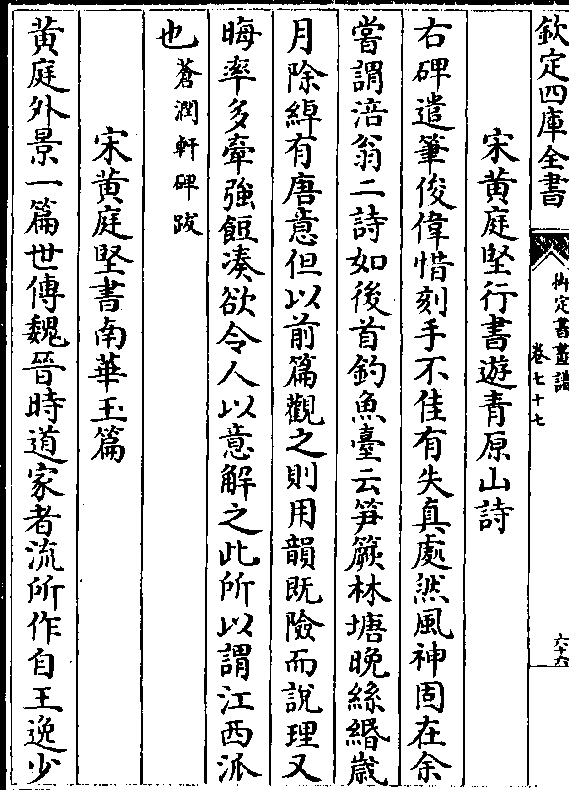 欽定四庫全書
御定書畫譜
卷七十七
六十六
宋黄庭堅行書遊青原山詩
右碑遣筆俊偉惜刻手不佳有失真處然風神固在余
嘗謂涪翁二詩如後首釣魚臺云笋蕨林塘晚絲緡歳
月除綽有唐意但以前篇觀之則用韻既險而説理又
晦率多牽強餖湊欲令人以意解之此所以謂江西派
也蒼潤軒碑跋
宋黄庭堅書南華玉篇
黄庭外景一篇世傳魏晉時道家者流所作自王逸少